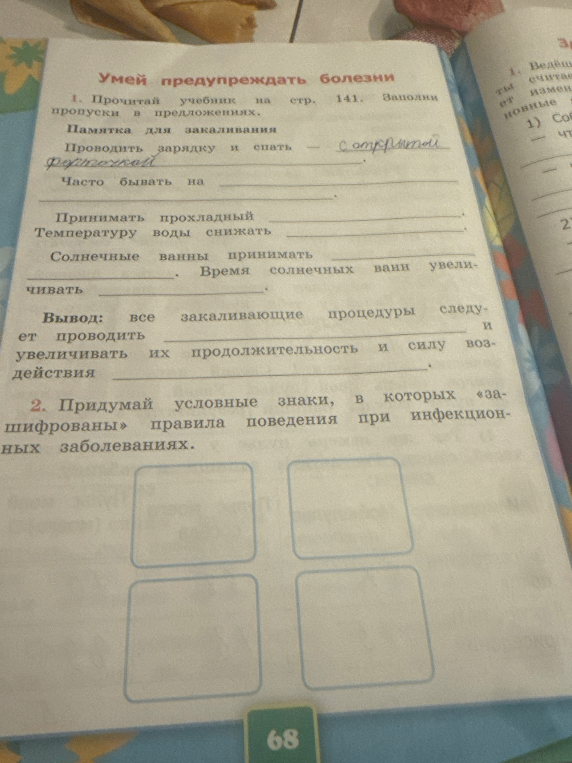 Умей предупреждать болезни
1. Прочитай учебник на стр. 141. Заполни
пропуски в предложениях.
Памятка для закаливания
Проводить зарядку и спать — с открытой
форточкой.
Часто бывать на
.
Принимать прохладный .
Температуру воды снижать .
Солнечные ванны принимать
. Время солнечных ванн увели-
чивать .
Вывод: все закаливающие процедуры следу-
ет проводить и
увеличивать их продолжительность и силу воз-
действия .
2. Придумай условные знаки, в которых «за-
шифрованы» правила поведения при инфекцион-
ных заболеваниях.
68
1. Ведёш
ты счита
ет измен
новные
1) Со
— чт
—
2